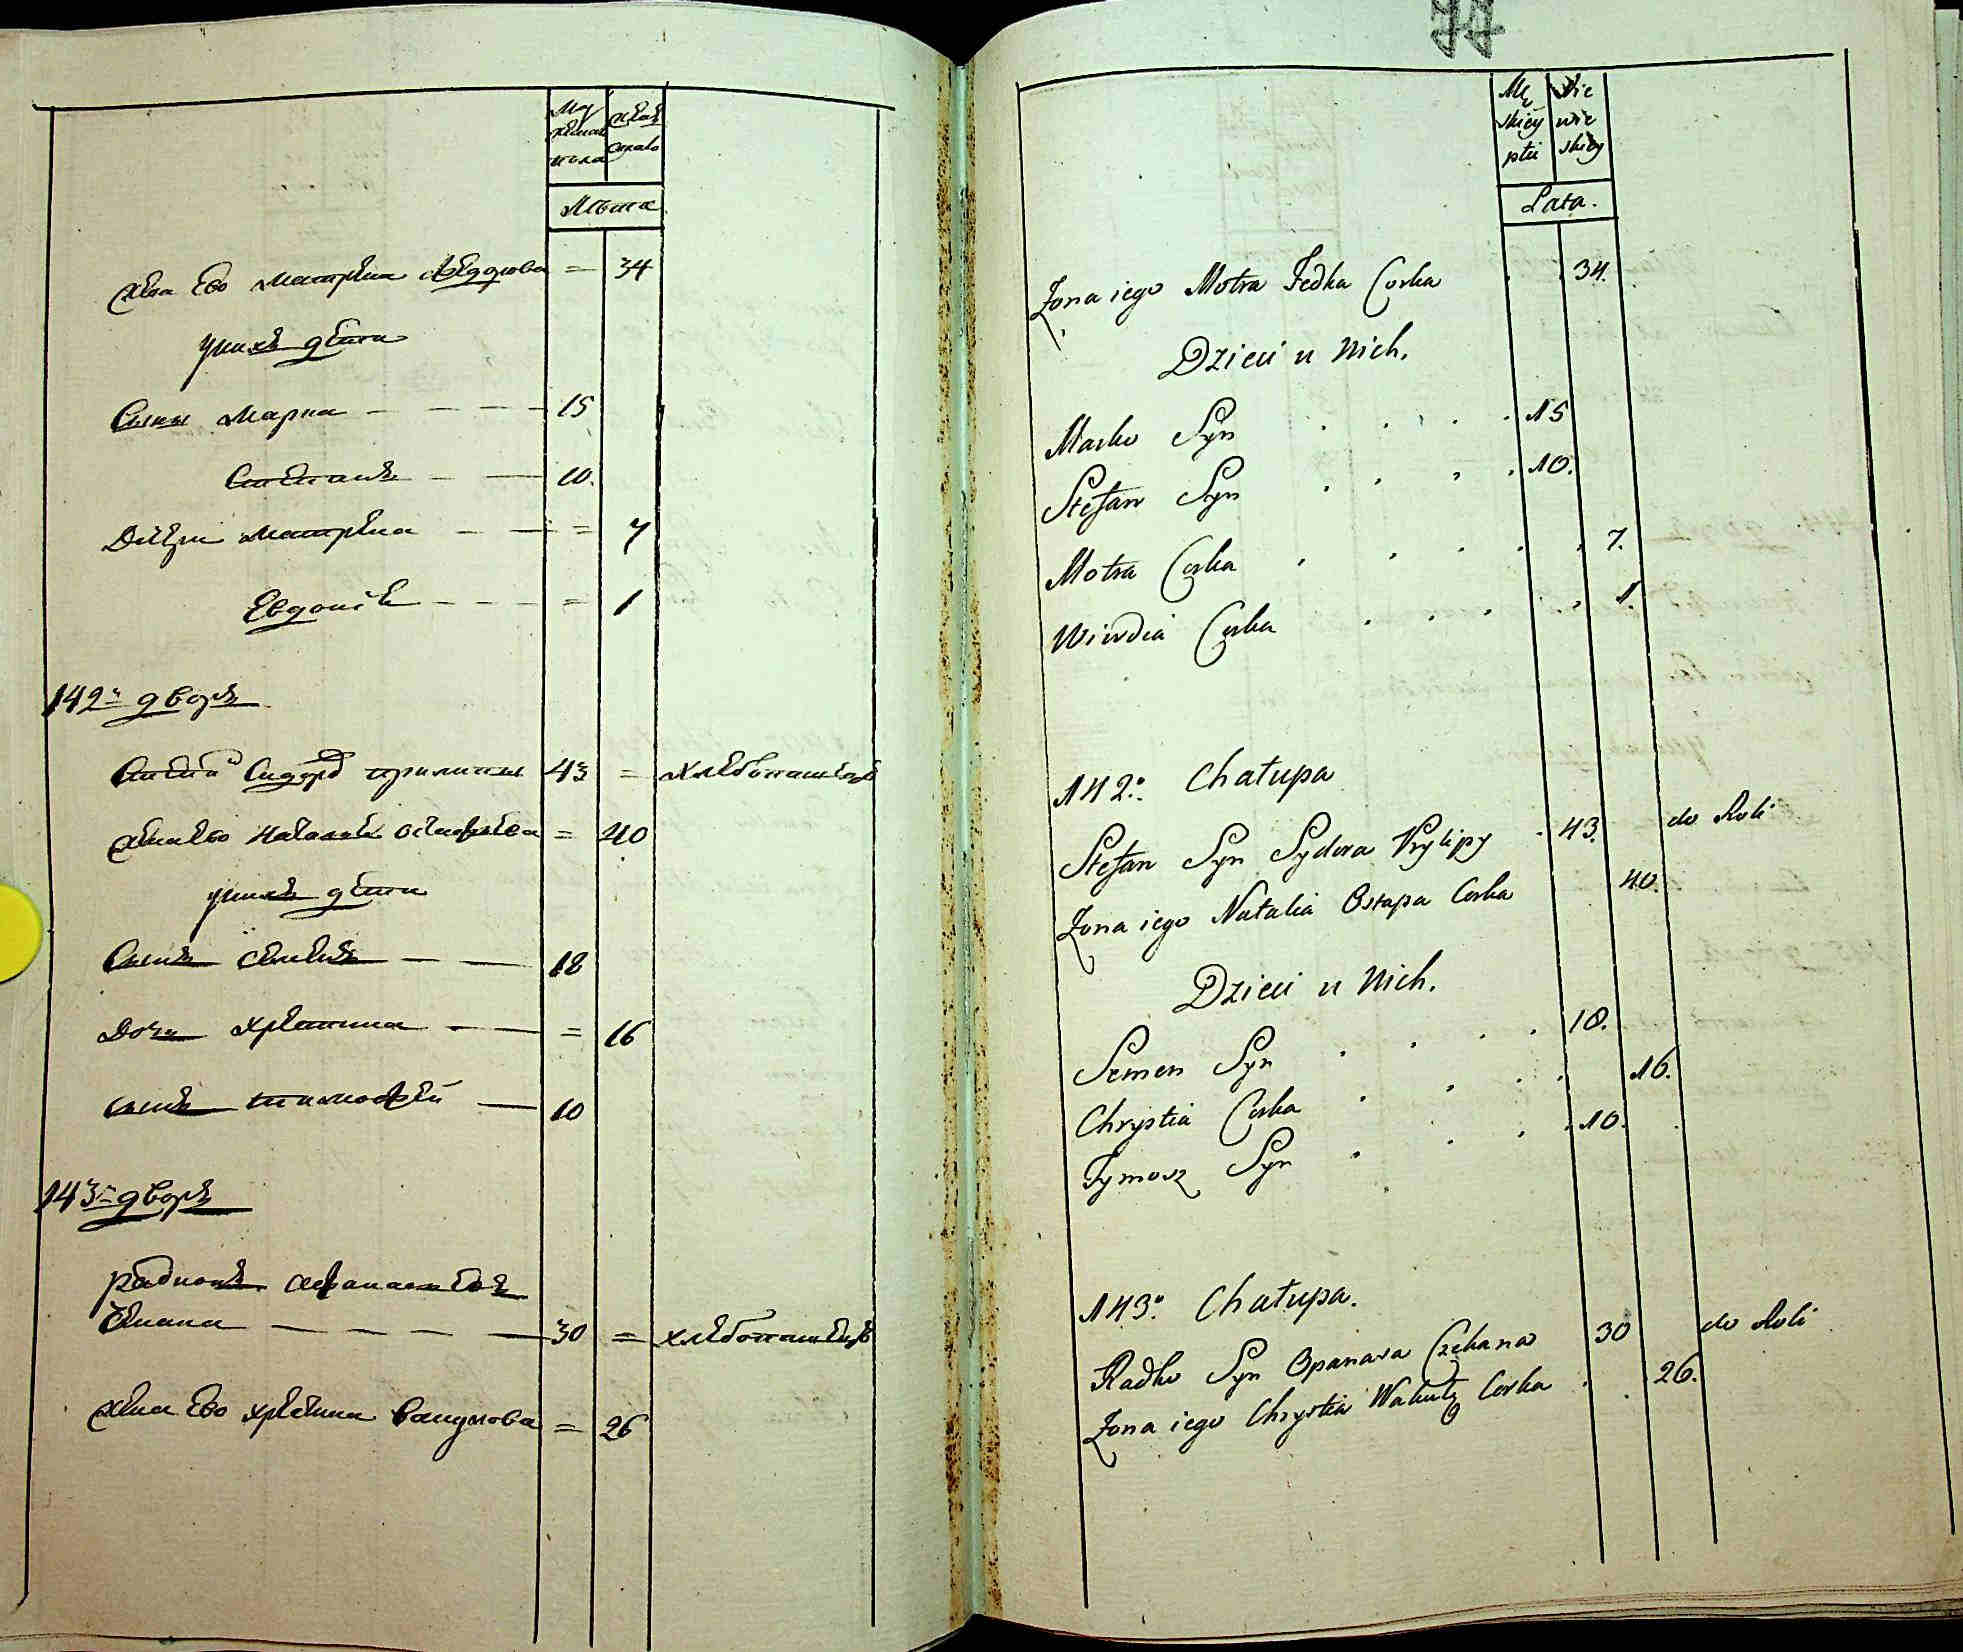 Му
жеска
пола
жен
скаго
Лѣта
жена Ево Матрена Федорова = 34
у нихъ дети
Сыны Марка 15
Степанъ 10.
Дочери Матрена = 7
Евдокия = 1
142й дворъ
Степанъ Сидоръ прилипы 43 = хлебопашецъ
жена ево Наталия Остапова = 40
у нихъ дети
Сынъ Семенъ 18
Дочь Христина = 16
сынъ тимофей 10
143й дворъ
Радионъ Афанасьевъ
Чекана 30 = хлебопашецъ
жена Ево христина Вакулова = 26
77
Mę
skiey
płci
Nie
wie
skiey
Lata.
Zona iego Motra Fedka Corka 34.
Dzieci u Nich.
Marko Syn 15
Stefan Syn 10.
Motra Corka 7.
Wiwdia Corka 1.
142o. Chałupa
Stefan Syn Sydora Prylipy 43. do Roli
Zona iego Natalia Ostapa Corka 40.
Dzieci u Nich.
Semen Syn 18.
Chrystia Corka 16.
Tymosz Syn 10.
143o Chałupa.
Radko Syn Opanasa Czekana 30 do Roli
Zona iego Chrystia Wakuły Corka 26.